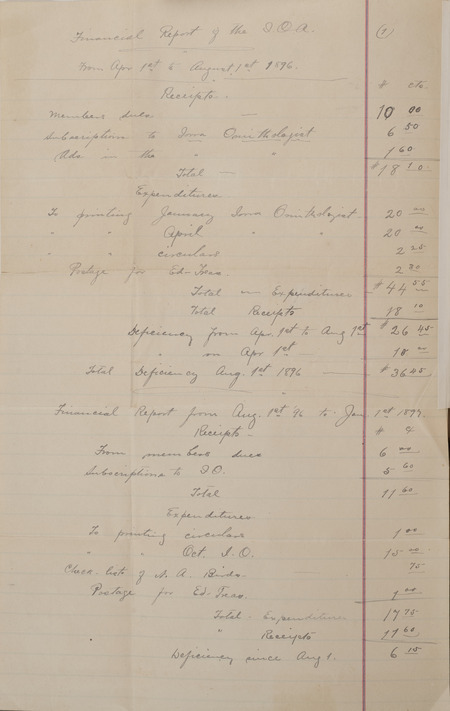 Financial Report of the I.O.A. (1)
From Apr 1st to August 1st 1896.
Receipts. $ cts.
Members dues 10 00
Subscriptions to Iowa Ornithologist 6 50
Ads in the " " 1 60
Total — $ 18 10
Expenditures
To printing January Iowa Ornithologist 20 00
" " April " " 20 00
" " circulars 2 25
Postage for Ed-Treas. 2 30
Total — Expenditures $ 44 55
Total Receipts 18 10
Deficiency from Apr. 1st to Aug 1st $ 26 45
" on Apr 1st — 10 00
Total Deficiency Aug. 1st 1896 — $ 36 45
Financial Report from Aug. 1st '96 to Jan. 1st 1897.
Receipts — $ ¢
From members dues 6 00
Subscriptions to I.O. 5 60
Total 11 60
Expenditures
To printing circulars 1 00
" " Oct. I.O. 15 00
Check-lists of N. A. Birds. 75
Postage for Ed. Treas. 1 00
Total. Expenditures 17 75
" Receipts 11 60
Deficiency since Aug 1. 6 15